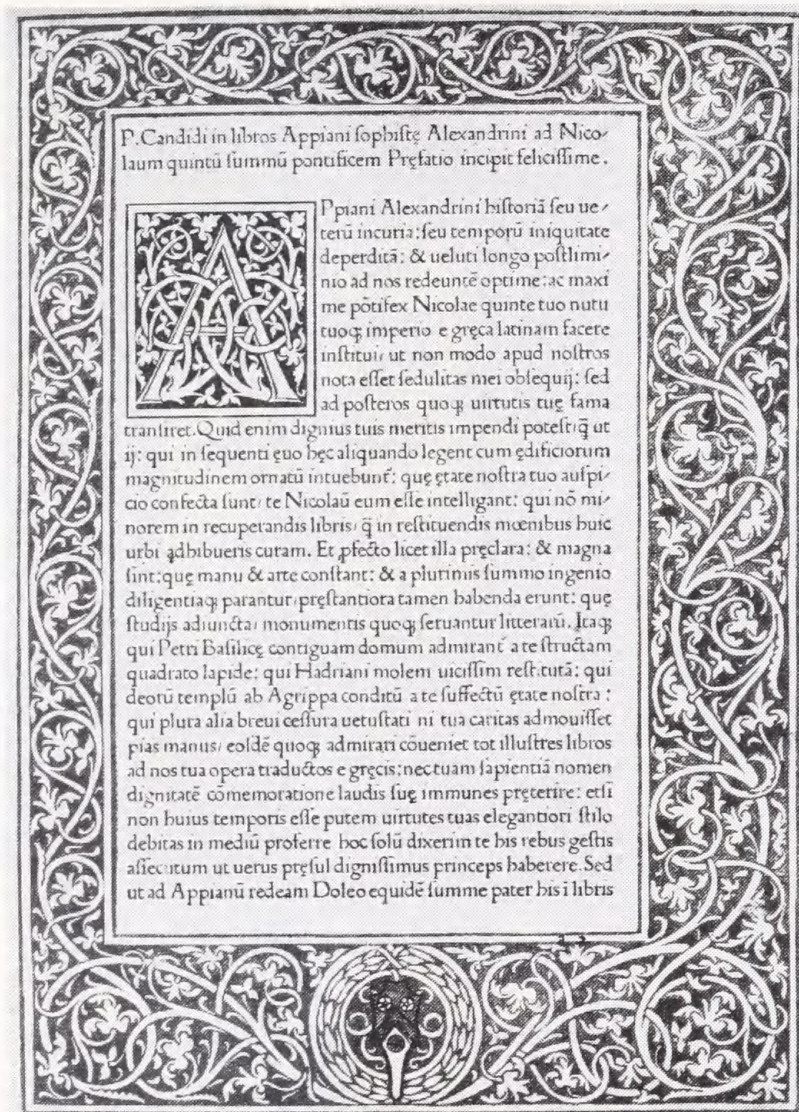 P. Candidi in libros Appiani sophistę Alexandrini ad Nico-
laum quintū summū pontificem Pręfatio incipit felicissime.
APpiani Alexandrini historiā seu ue-
terū incuria: seu temporū iniquitate
deperditā: & ueluti longo postlimi-
nio ad nos redeuntē optime: ac maxi
me pōtifex Nicolae quinte tuo nutu
tuoqꝫ imperio e gręca latinam facere
institui, ut non modo apud nostros
nota esset sedulitas mei obsequij: sed
ad posteros quoqꝫ uirtutis tuę fama
transiret. Quid enim dignius tuis meritis impendi potest: q̄ ut
ij: qui in sequenti ęuo hęc aliquando legent cum ędificiorum
magnitudinem ornatū intuebunt̄: quę ętate nostra tuo auspi-
cio confecta sunt, te Nicolaū eum esse intelligant: qui nō mi-
norem in recuperandis libris, q̄ in restituendis mœnibus huic
urbi adhibueris curam. Et ꝓfecto licet illa pręclara: & magna
sint: quę manu & arte constant: & a plurimis summo ingenio
diligentiaqꝫ parantur, pręstantiora tamen habenda erunt: quę
studijs adiuncta, monumentis quoqꝫ seruantur litterarū. Itaqꝫ
qui Petri Basilicę contiguam domum admirant̄ a te structam
quadrato lapide: qui Hadriani molem uicissim restitutā: qui
deorū templū ab Agrippa conditū a te suffectū ętate nostra:
qui plura alia breui cessura uetustati ni tua caritas admouisset
pias manus, eosdē quoqꝫ admirari cōueniet tot illustres libros
ad nos tua opera traductos e gręcis: nec tuam sapientiā nomen
dignitatē cōmemoratione laudis suę immunes pręterire: etsi
non huius temporis esse putem uirtutes tuas elegantiori stilo
debitas in mediū proferre hoc solū dixerim te his rebus gestis
assecutum ut uerus pręsul dignissimus princeps haberere. Sed
ut ad Appianū redeam Doleo equidē summe pater his ī libris